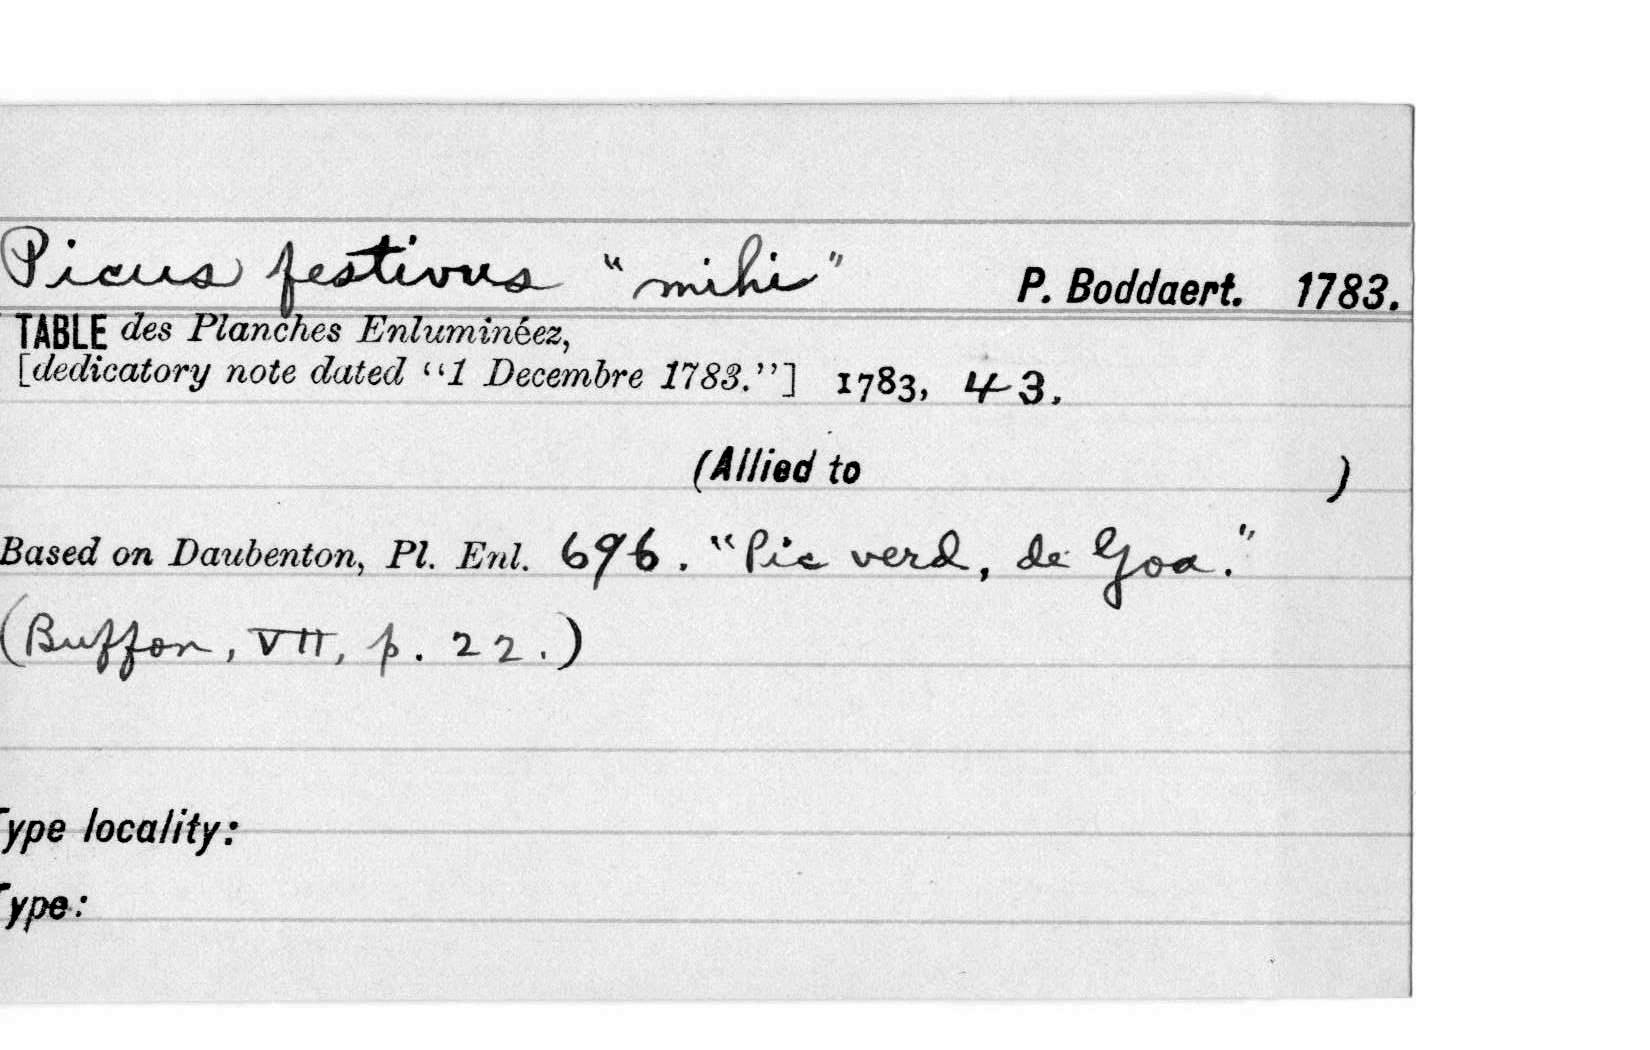 Picus festivus "mihi" P. Boddaert. 1783.
TABLE des Planches Enluminéez,
[dedicatory note dated "1 Decembre 1783."] 1783, 43.
(Allied to )
Based on Daubenton, Pl. Enl. 696. "Pic verd, de Goa."
(Buffon, VII, p. 22.)
Type locality:
Type: